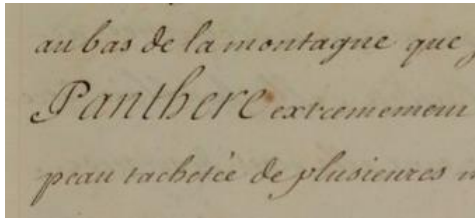 au bas de la montagne que
Panthere extrememeu
peau tachetée de plusieures